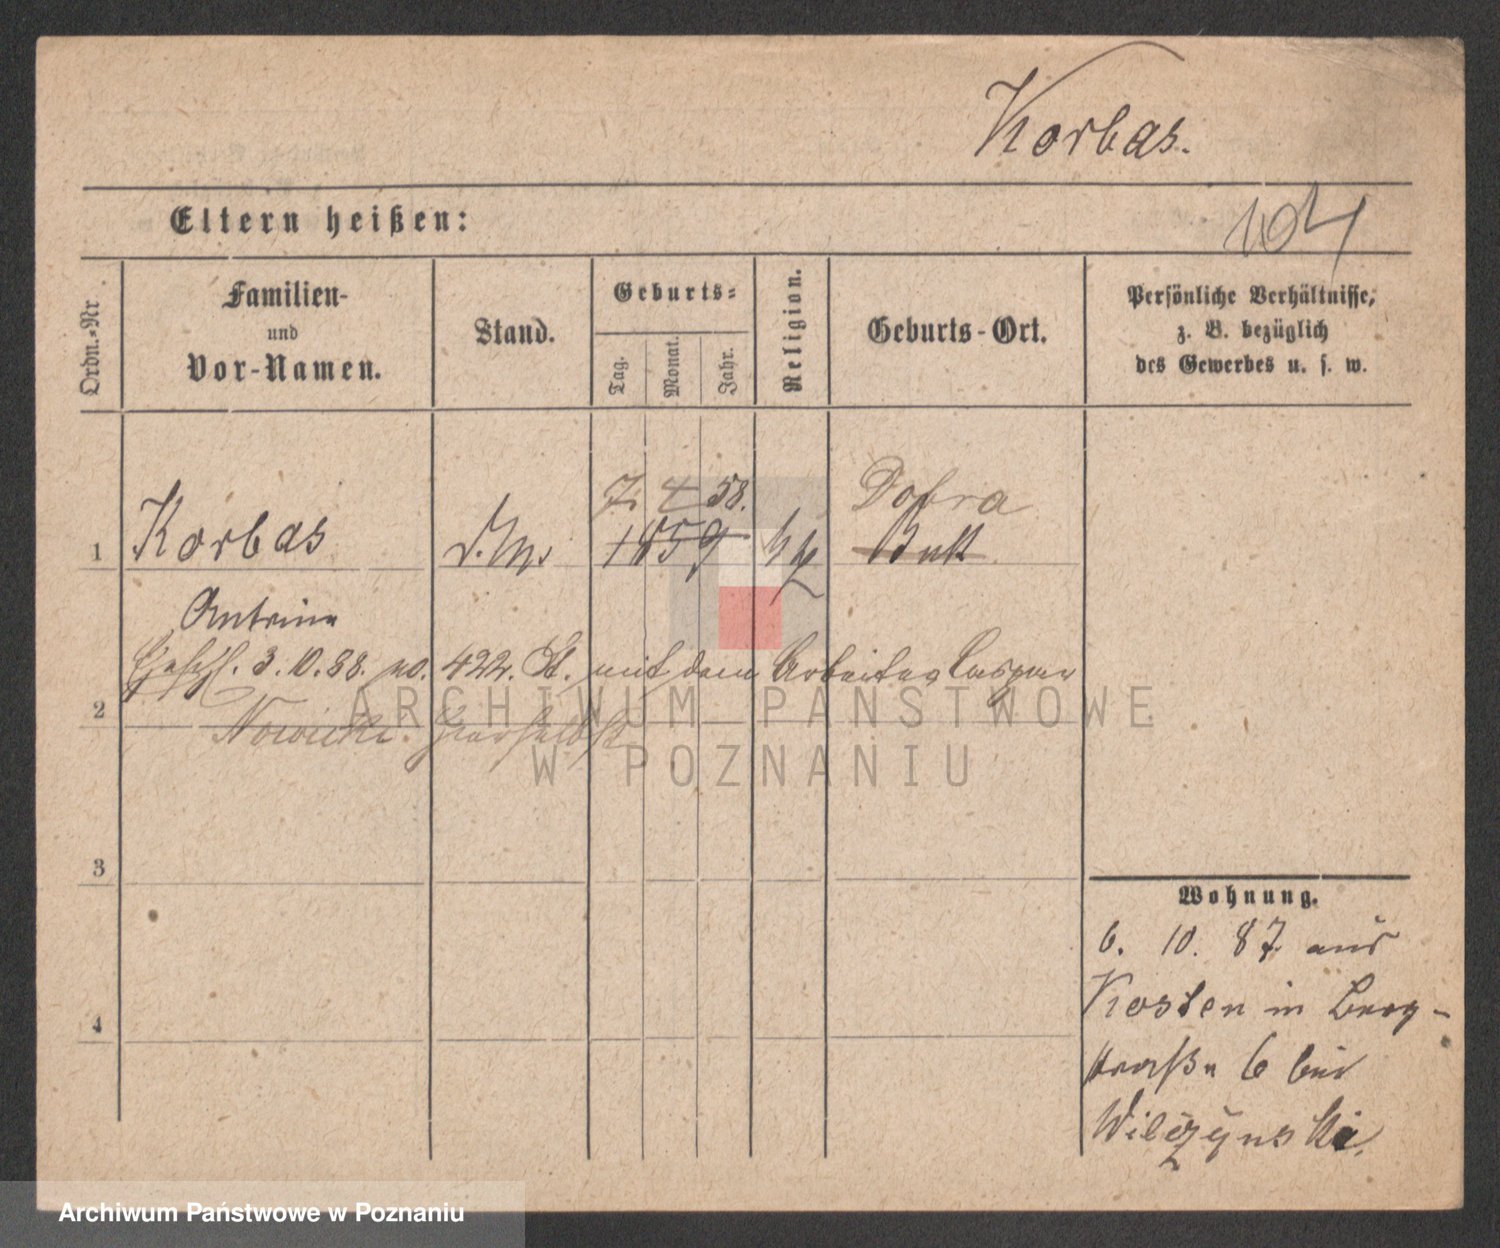 Korbas.
Eltern heißen:
104
Ordn.-Nr.
Familien-
und
Vor-Namen.
Stand.
Geburts-
Tag.
Monat.
Jahr.
Religion.
Geburts-Ort.
Persönliche Verhältnisse,
z. B. bezüglich
des Gewerbes u. s. w.
7. 4 58. Dobra
1 Korbas 1859 Buk
Antonina
3. 10. 88. no. 422. St. mit dem Arbeiter Caspar
2
Nowicki. hierselbst
ARCHIWUM PAŃSTWOWE
W POZNANIU
3
Wohnung.
6. 10. 87 aus
Kosten in Berg-
straße 6 bei
Wilczynski.
4
Archiwum Państwowe w Poznaniu